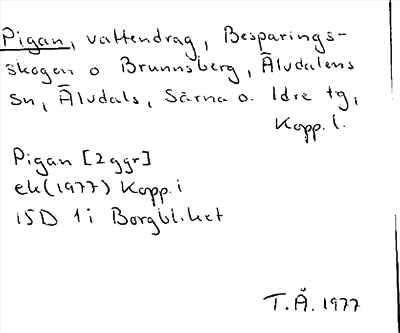 Pigan, vattendrag, Besparings-
skogen o. Brunnsberg, Älvdalens
sn, Älvdals, Särna o. Idre tg,
Kopp. l.
Pigan [2ggr]
ek (1977) Kopp. i
15D 1i Borgbliket
T.Å. 1977